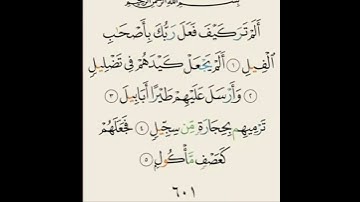 بِسْمِ اللَّهِ الرَّحْمَٰنِ الرَّحِيمِ
أَلَمْ تَرَ كَيْفَ فَعَلَ رَبُّكَ بِأَصْحَٰبِ
ٱلْفِيلِ ١ أَلَمْ يَجْعَلْ كَيْدَهُمْ فِى تَضْلِيلٍ
٢ وَأَرْسَلَ عَلَيْهِمْ طَيْرًا أَبَابِيلَ ٣
تَرْمِيهِم بِحِجَارَةٍ مِّن سِجِّيلٍ ٤ فَجَعَلَهُمْ
كَعَصْفٍ مَّأْكُولٍ ٥
٦٠١